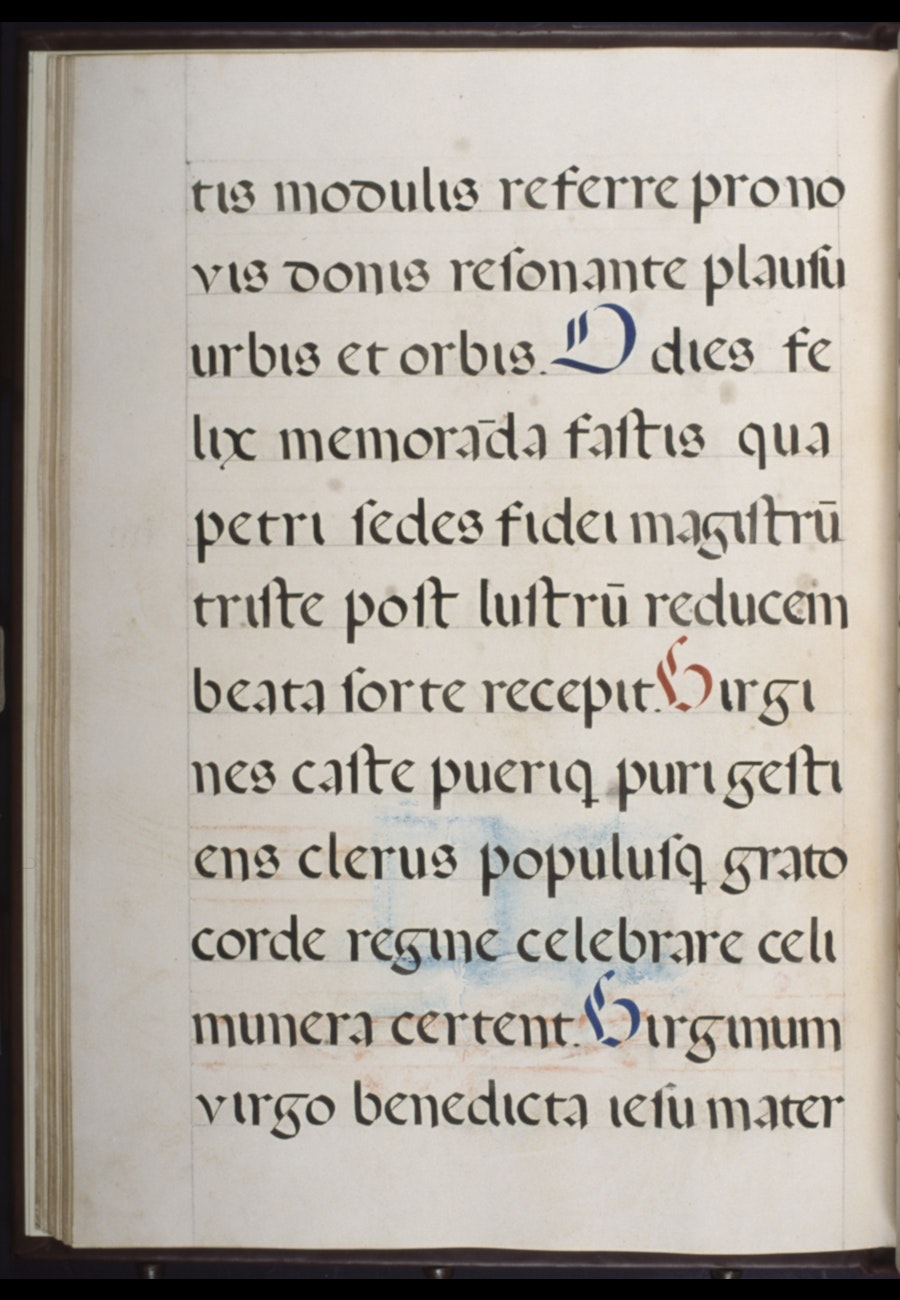 tis modulis referre pro no
vis donis reſonante plauſu
urbis et orbis. O dies fe
lix memorāda faſtis qua
petri ſedes fidei magiſtrū
triſte poſt luſtrū reducem
beata ſorte recepit. Virgi
nes caſte pueriq puri geſti
ens clerus populuſq grato
corde regine celebrare celi
munera certent. Virginum
virgo benedicta ieſu mater